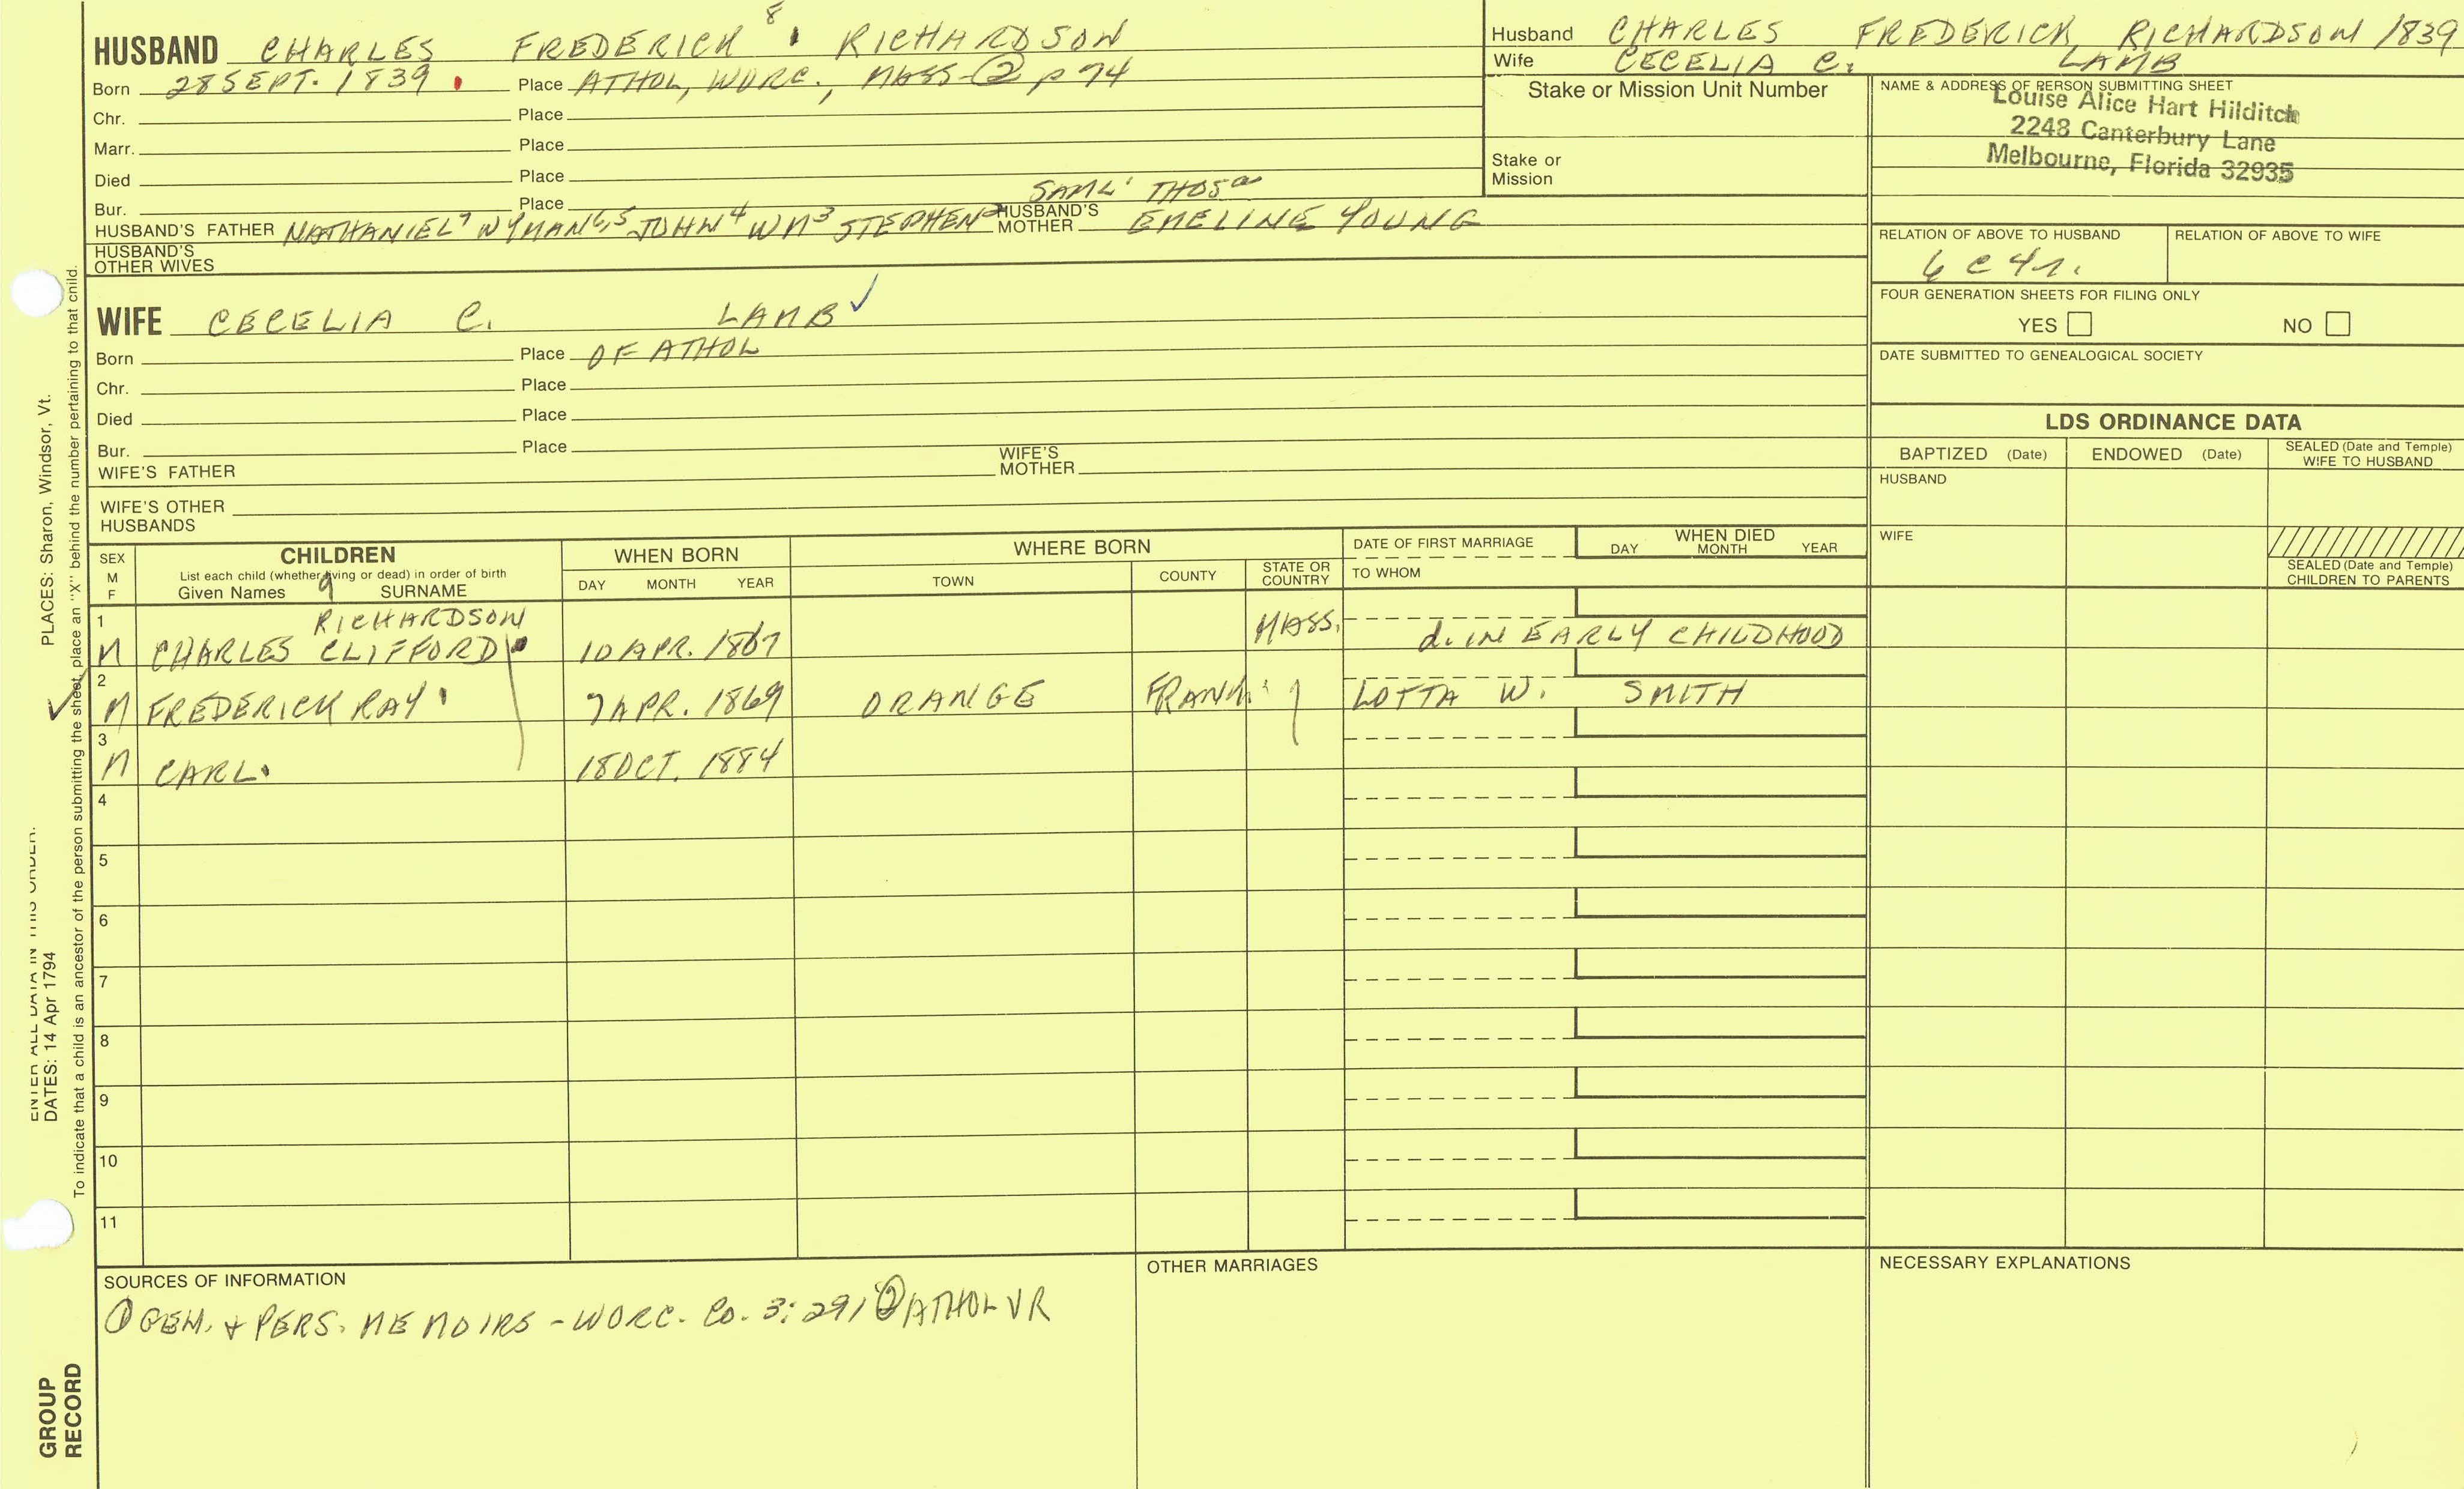 HUSBAND CHARLES FREDERICK 8 RICHARDSON
Born 28 SEPT. 1839 Place ATHOL, WORC., MASS ② p 74
Chr. Place
Marr. Place
Died Place
Bur. Place
SAML' THOS
HUSBAND'S FATHER NATHANIEL7 WYMAN6,5 JOHN4 WM3 STEPHEN2 HUSBAND'S MOTHER EMELINE YOUNG
HUSBAND'S OTHER WIVES
Husband CHARLES FREDERICK RICHARDSON 1839
Wife CECELIA C. LAMB
Stake or Mission Unit Number
Stake or Mission
NAME & ADDRESS OF PERSON SUBMITTING SHEET
Louise Alice Hart Hilditch
2248 Canterbury Lane
Melbourne, Florida 32935
RELATION OF ABOVE TO HUSBAND RELATION OF ABOVE TO WIFE
6 C 4 r.
FOUR GENERATION SHEETS FOR FILING ONLY
YES NO
DATE SUBMITTED TO GENEALOGICAL SOCIETY
WIFE CECELIA C. LAMB
Born Place OF ATHOL
Chr. Place
Died Place
Bur. Place
WIFE'S FATHER WIFE'S MOTHER
WIFE'S OTHER HUSBANDS
LDS ORDINANCE DATA
BAPTIZED (Date) ENDOWED (Date) SEALED (Date and Temple) WIFE TO HUSBAND
HUSBAND
WIFE
SEALED (Date and Temple) CHILDREN TO PARENTS
SEX M F
CHILDREN
List each child (whether living or dead) in order of birth
Given Names 9 SURNAME
WHEN BORN
DAY MONTH YEAR
WHERE BORN
TOWN COUNTY STATE OR COUNTRY
DATE OF FIRST MARRIAGE
TO WHOM
WHEN DIED
DAY MONTH YEAR
1 RICHARDSON
M CHARLES CLIFFORD 10 APR. 1867 MASS. d. IN EARLY CHILDHOOD
2
M FREDERICK RAY 7 APR. 1869 ORANGE FRANK. LOTTA W. SMITH
3
M CARL 18 OCT. 1884
4
5
6
7
8
9
10
11
SOURCES OF INFORMATION
① GEN. + PERS. MEMOIRS - WORC. CO. 3:291 ② ATHOL VR
OTHER MARRIAGES
NECESSARY EXPLANATIONS
ENTER ALL DATA IN THIS ORDER:
DATES: 14 Apr 1794 PLACES: Sharon, Windsor, Vt.
To indicate that a child is an ancestor of the person submitting the sheet, place an "X" behind the number pertaining to that child.
GROUP
RECORD